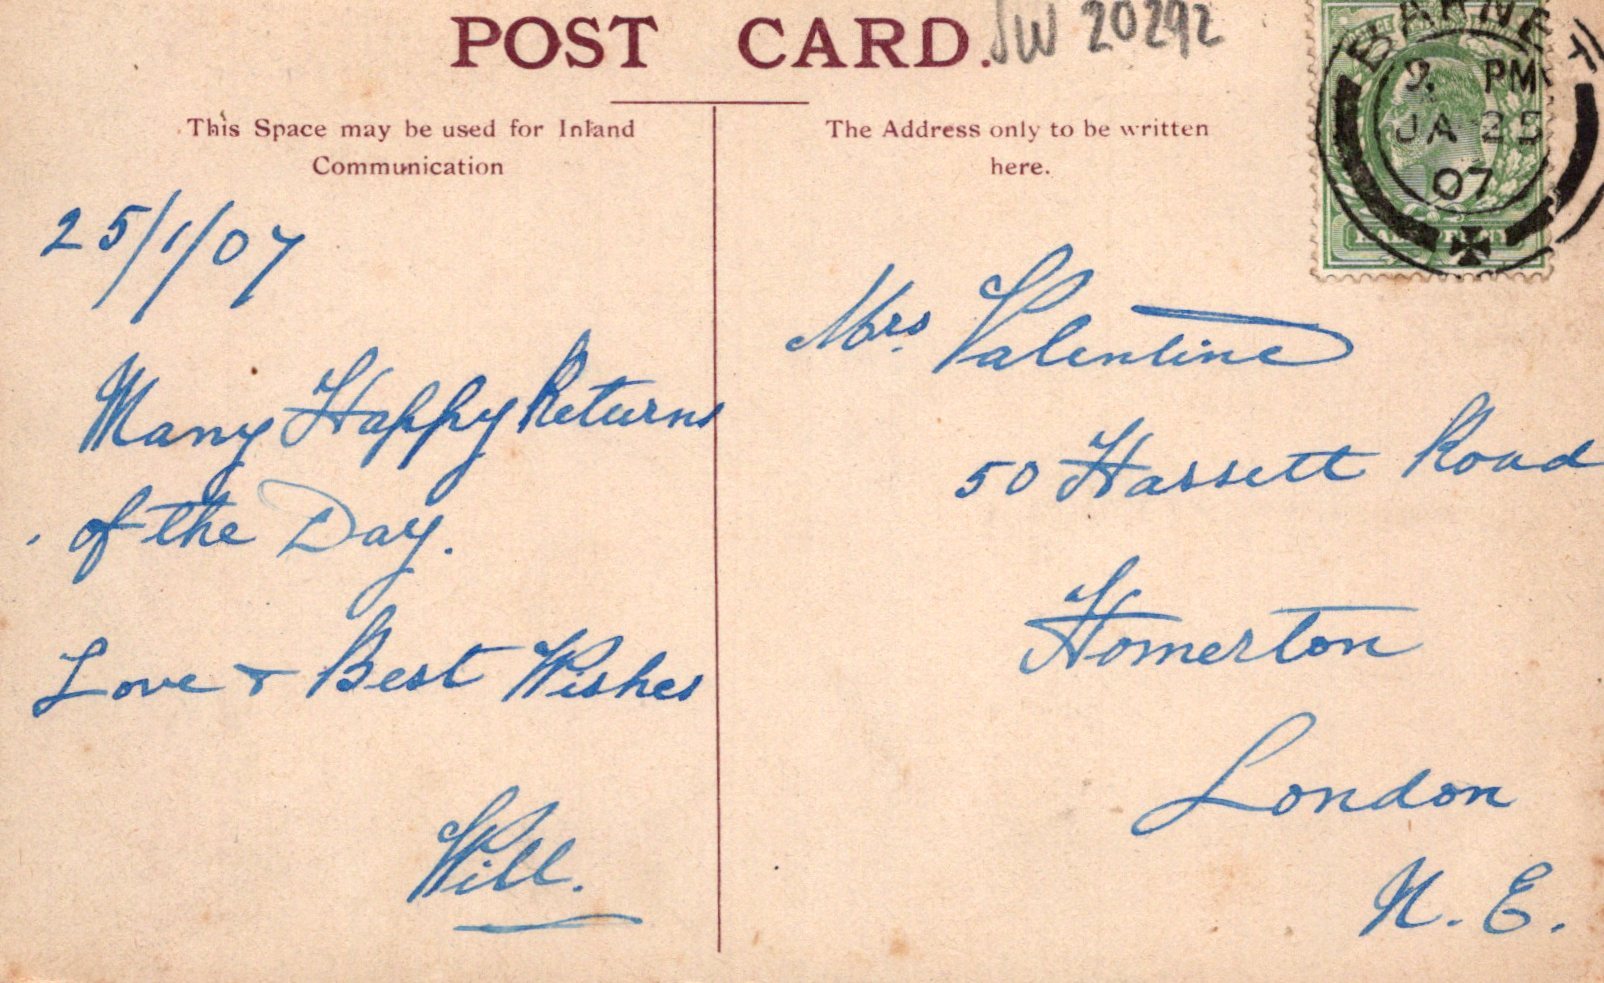 POST CARD.
JW 20292
This Space may be used for Inland
Communication
The Address only to be written
here.
BARNET
PM
JA 25
07
HALFPENNY
25/1/07
Many Happy Returns
of the Day.
Love & Best Wishes
Will.
Mrs. Valentine
50 Hassett Road
Homerton
London
N. E.